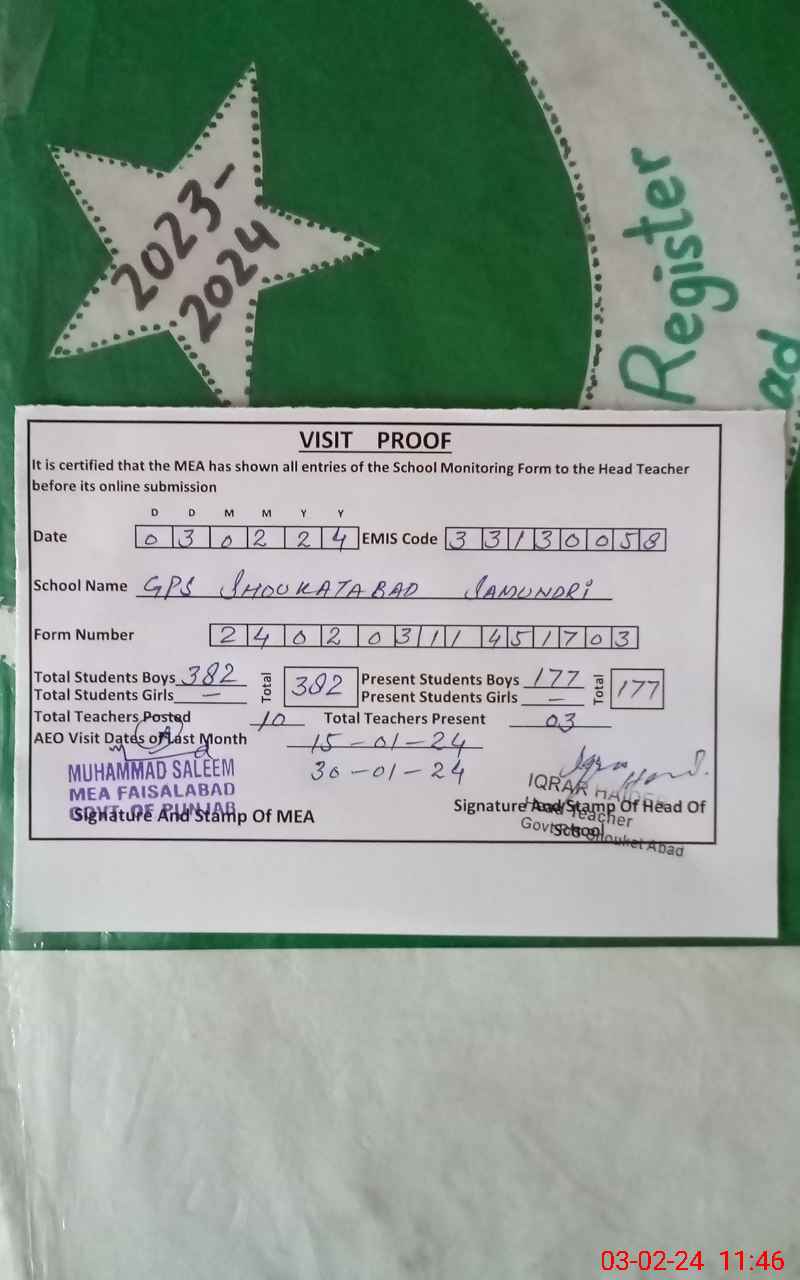 2023-
2024
Register
ad
VISIT PROOF
It is certified that the MEA has shown all entries of the School Monitoring Form to the Head Teacher
before its online submission
D D M M Y Y
Date 0 3 0 2 2 4 EMIS Code 3 3 1 3 0 0 5 8
School Name GPS SHOUKATABAD SAMUNDRI
Form Number 2 4 0 2 0 3 1 1 4 5 1 7 0 3
Total Students Boys 382 Total 382 Present Students Boys 177 Total 177
Total Students Girls — Present Students Girls —
Total Teachers Posted 10 Total Teachers Present 03
AEO Visit Dates of Last Month 15-01-24
30-01-24
MUHAMMAD SALEEM
MEA FAISALABAD
GOVT. OF PUNJAB
Signature And Stamp Of MEA
IQRAR HAIDER
Signature And Stamp Of Head Of
School
Head Teacher
Govt. P/S Shouket Abad
03-02-24 11:46